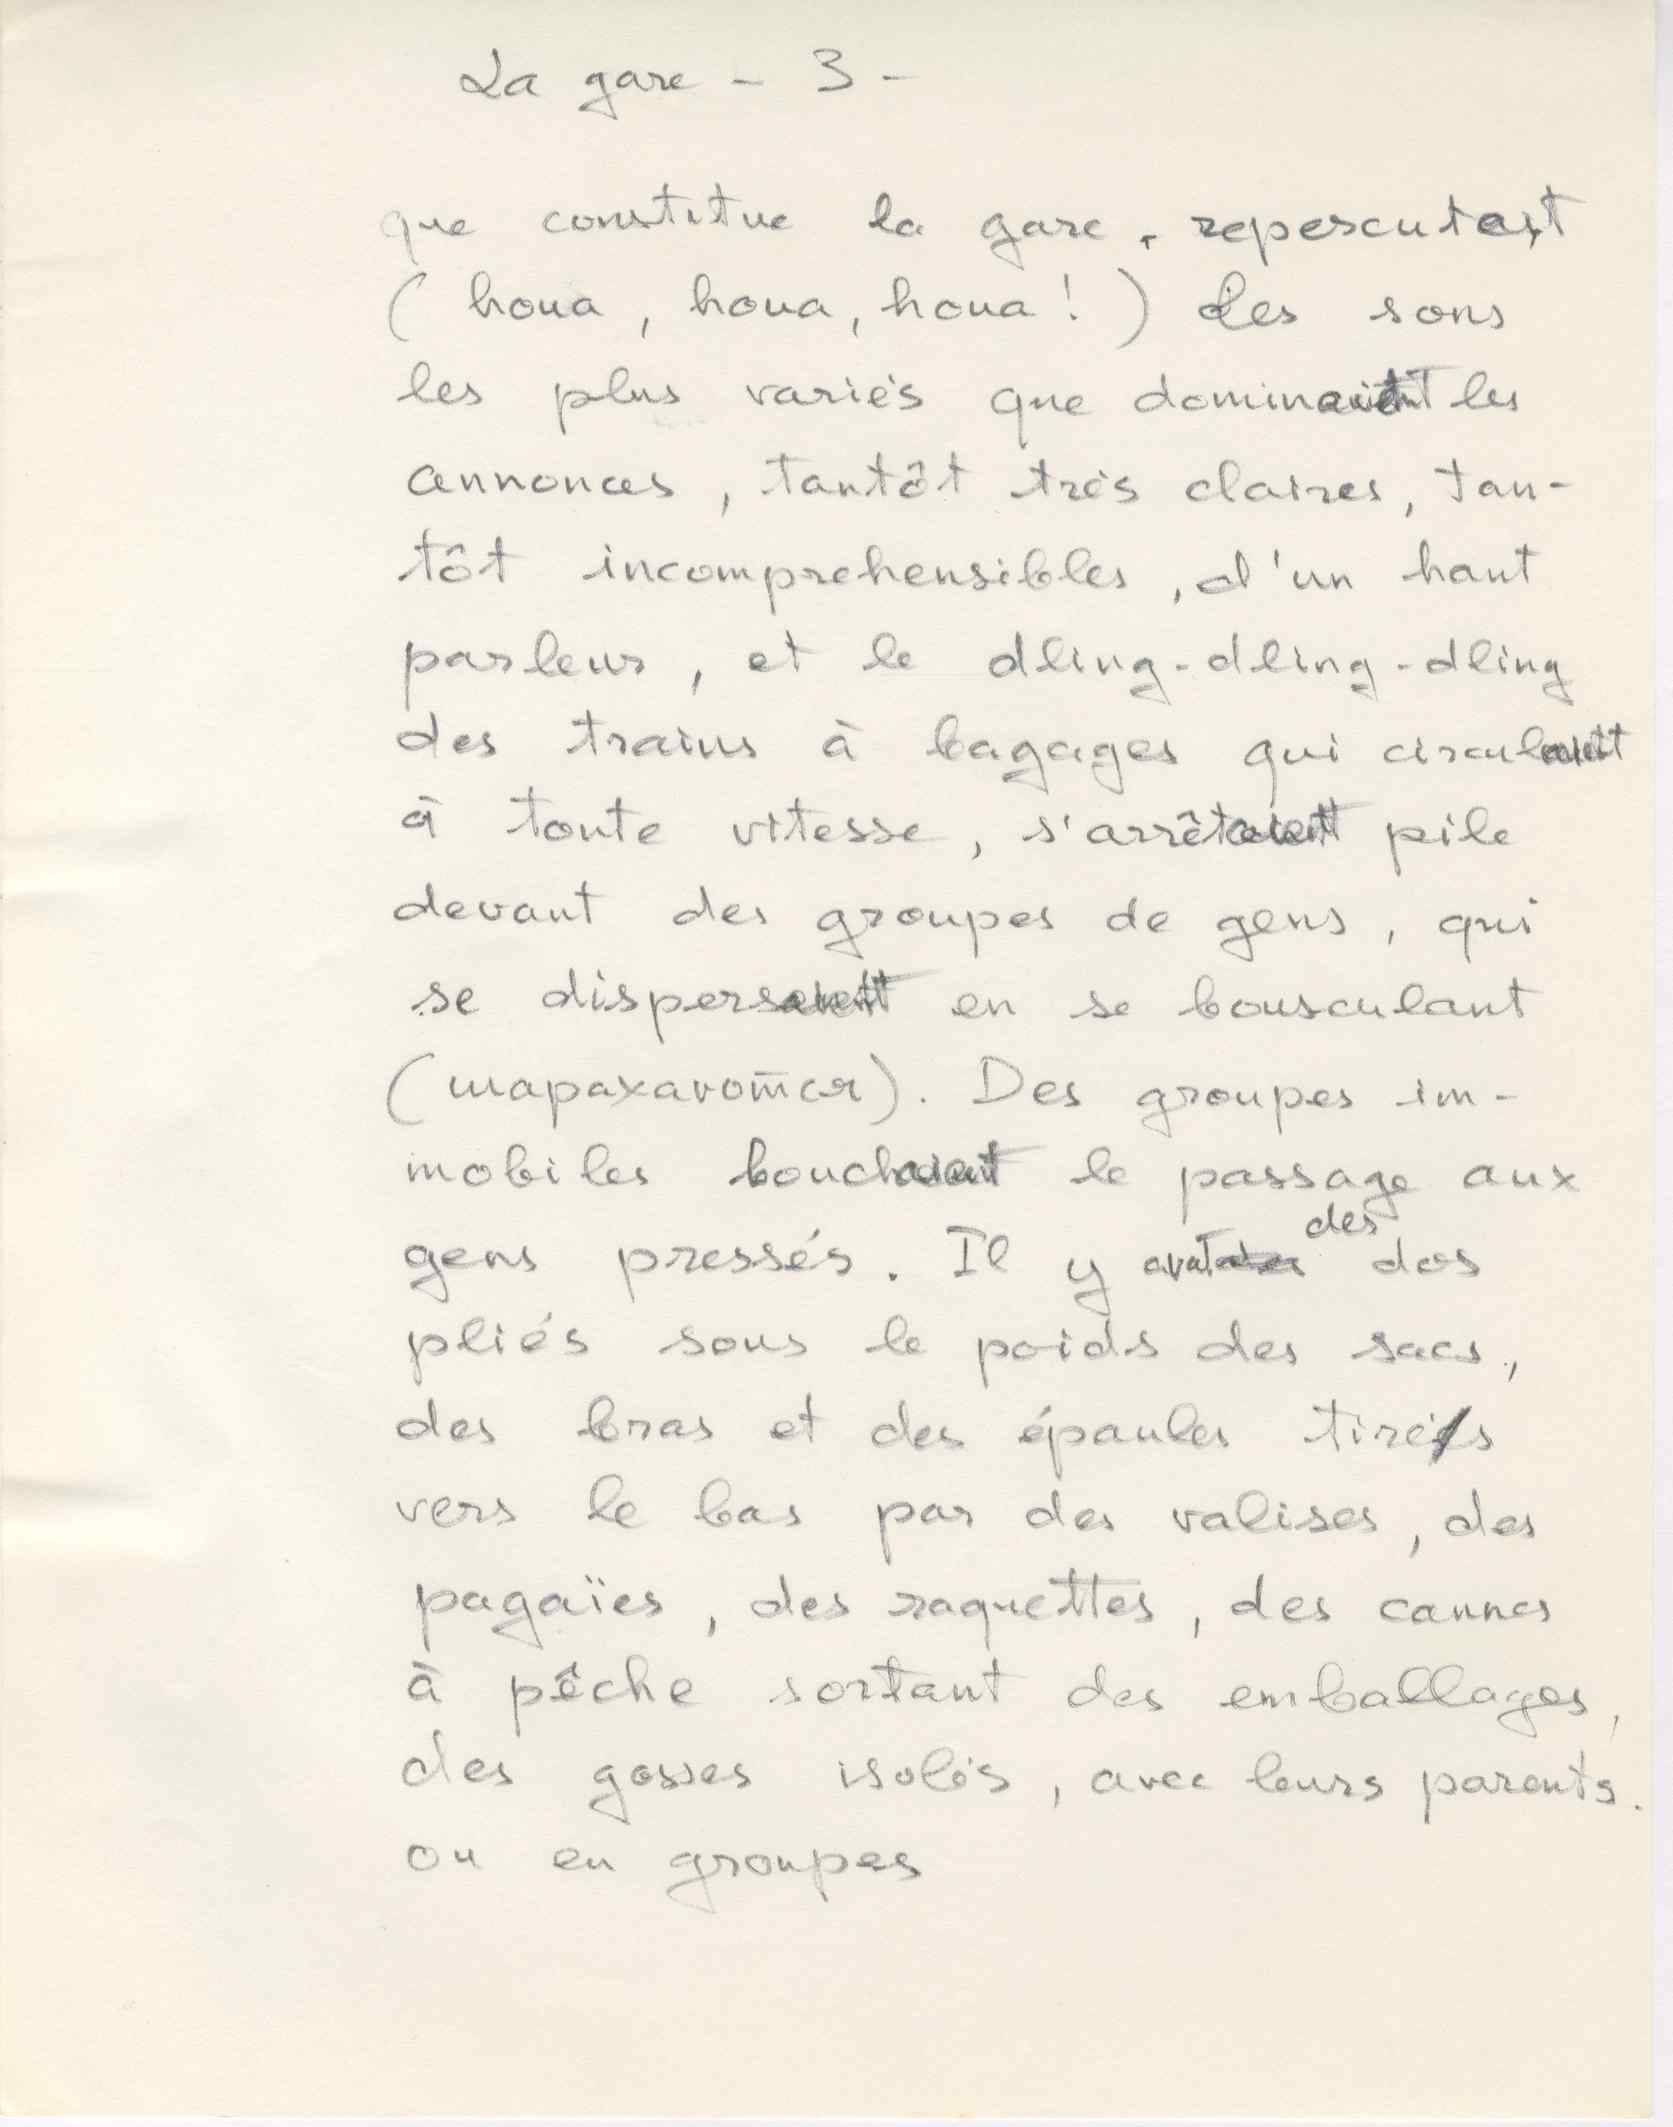 La gare - 3 -
que constitue la gare, repercutait
( houa, houa, houa ! ) les sons
les plus variés que dominaient les
annonces, tantôt très claires, tan-
tôt incomprehensibles, d'un haut
parleur, et le dling-dling-dling
des trains à bagages qui circulaient
à toute vitesse, s'arrêtaient pile
devant des groupes de gens, qui
se dispersaient en se bousculant
(шарахавотся). Des groupes im-
mobiles bouchaient le passage aux
gens pressés. Il y avait des dos
pliés sous le poids des sacs,
des bras et des épaules tirés
vers le bas par des valises, des
pagaïes, des raquettes, des cannes
à pêche sortant des emballages,
des gosses isolés, avec leurs parents.
ou en groupes